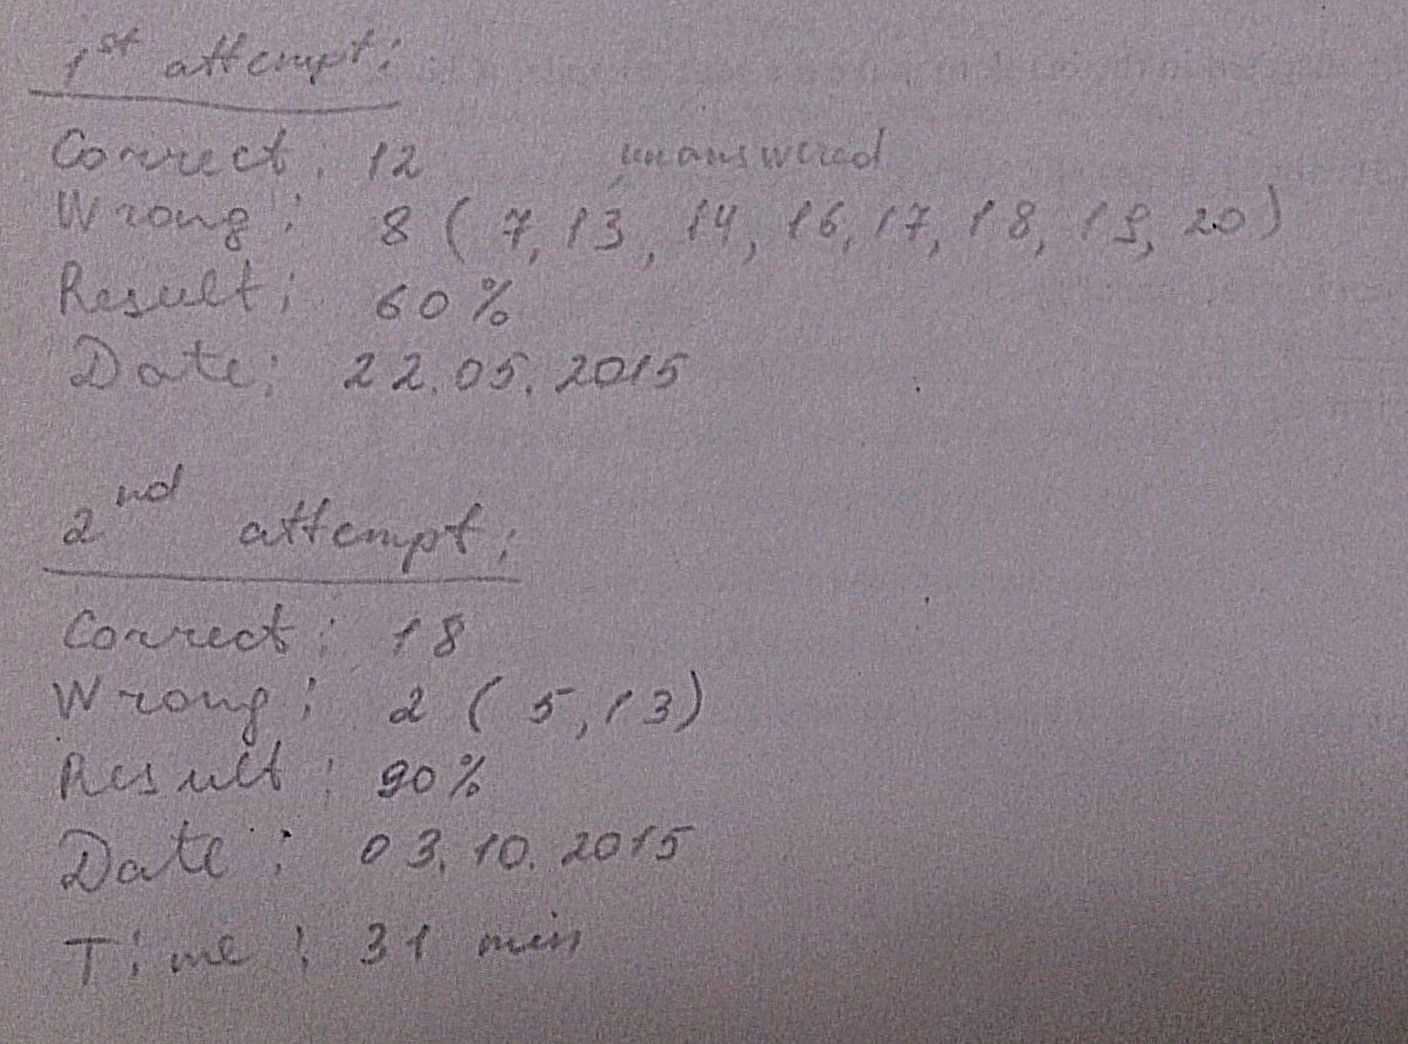 1st attempt:
Correct: 12
unanswered
Wrong: 8 (7, 13, 14, 16, 17, 18, 19, 20)
Result: 60%
Date: 22.05.2015
2nd attempt:
Correct: 18
Wrong: 2 (5, 13)
Result: 90%
Date: 03.10.2015
Time: 31 min